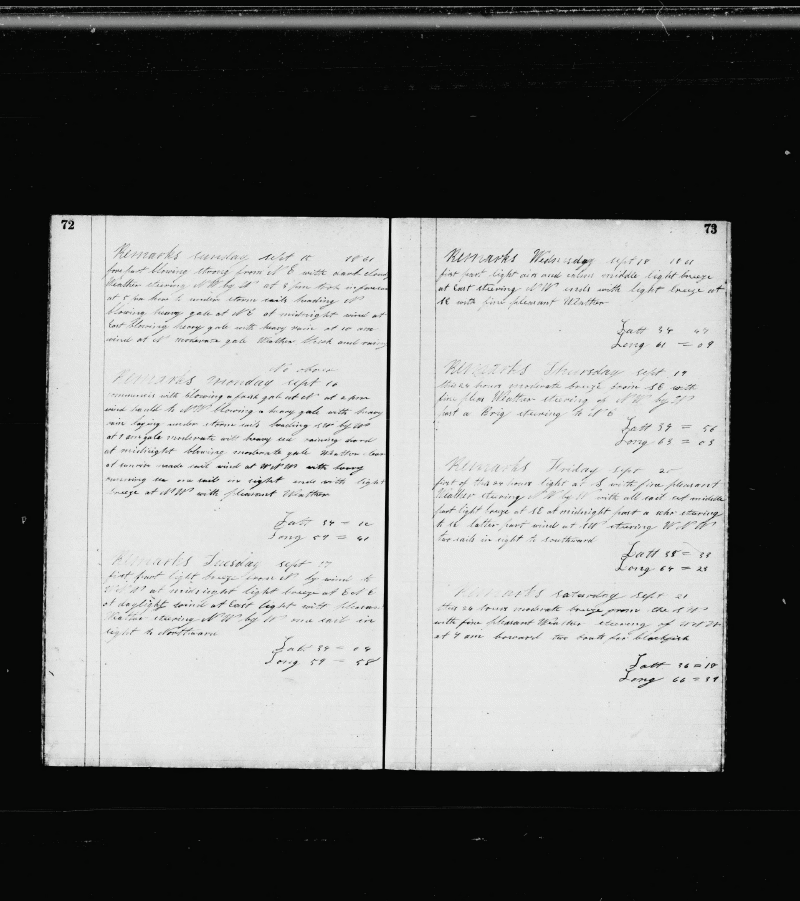 72
Remarks sunday sept 15 1861
fore part blowing strong from N E with dark cloudy
Weather steering NW by W at 8 pm
at 5 pm hove to under storm sails heading N
blowing heavy gale at N E at midnight wind at
East blowing heavy gale with heavy rain at 10 am
wind at N moderate gale Weather thick and rainy
No observ
Remarks monday sept 16
commences with blowing a fresh gale at N at 2 pm
wind hauld to NW blowing a heavy gale with heavy
rain laying under storm sails heading SW by W
at gale moderate with heavy sea raining hard
at midnight blowing moderate gale Weather
at sunrise made sail wind at W N W with heavy
running sea no sail in sight ends with light
breeze at N W with pleasant Weather
Latt 34 = 12
Long 59 = 41
Remarks Tuesday sept 17
first part light breeze from N by wind to
at midnight light breeze at E N E
at daylight wind at East light with pleasant
Weather steering N W by W one sail in
sight to Northward
Latt 34 = 04
Long 59 = 58
73
Remarks Wednsday sept 18 1861
first part light air and calms middle light breeze
at East steering NW ends with light breeze at
SE with fine pleasant Weather
Latt 34 44
Long 61 = 09
Remarks Thursday sept 19
this 24 hours moderate breeze from SE with
fine pleas Weather steering of N W by W
past a Brig steering to N E
Latt 34 = 56
Long 63 = 03
Remarks Friday sept 20
first of this 24 hours light at S with fine pleasant
Weather steering N W by W with all sail out middle
part light breeze at SE at midnight past a schr steering
latter part wind at SW steering W N W
two sails in sight to southward
Latt 35 = 33
Long 64 = 23
Remarks saturday sept 21
this 24 hours moderate breeze from the S W
with fine pleasant Weather steering of
at 9 am lowered two boats for blackfish
Latt 36 = 18
Long 66 = 39